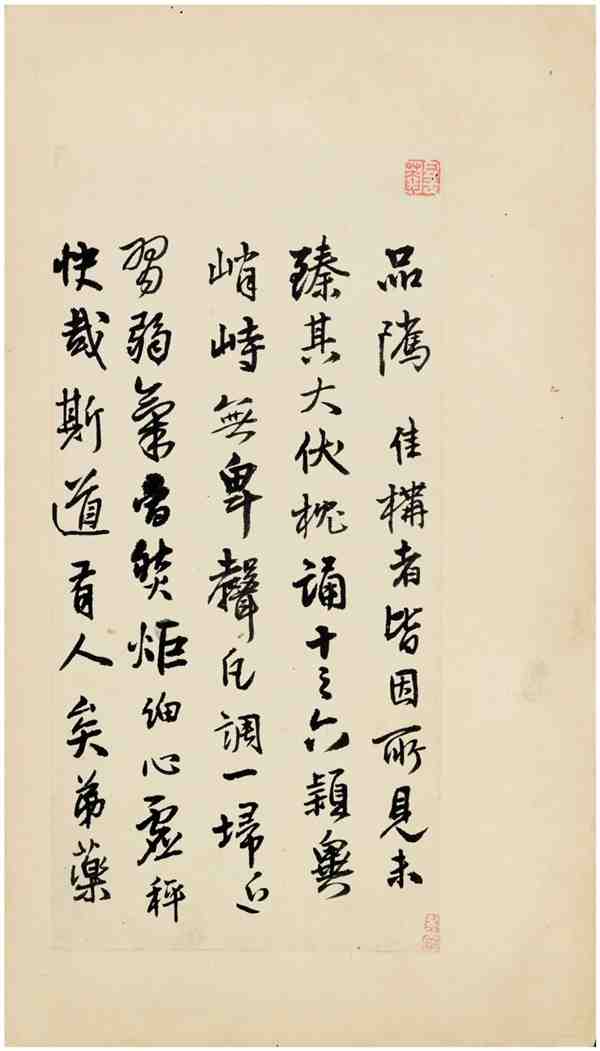 品隲 佳構者皆因所見未
臻其大伏枕誦十之六穎異
峭峙無卑聲凡調一埽近
習弱氣焚炬細心虛秤
快哉斯道有人矣弟藥